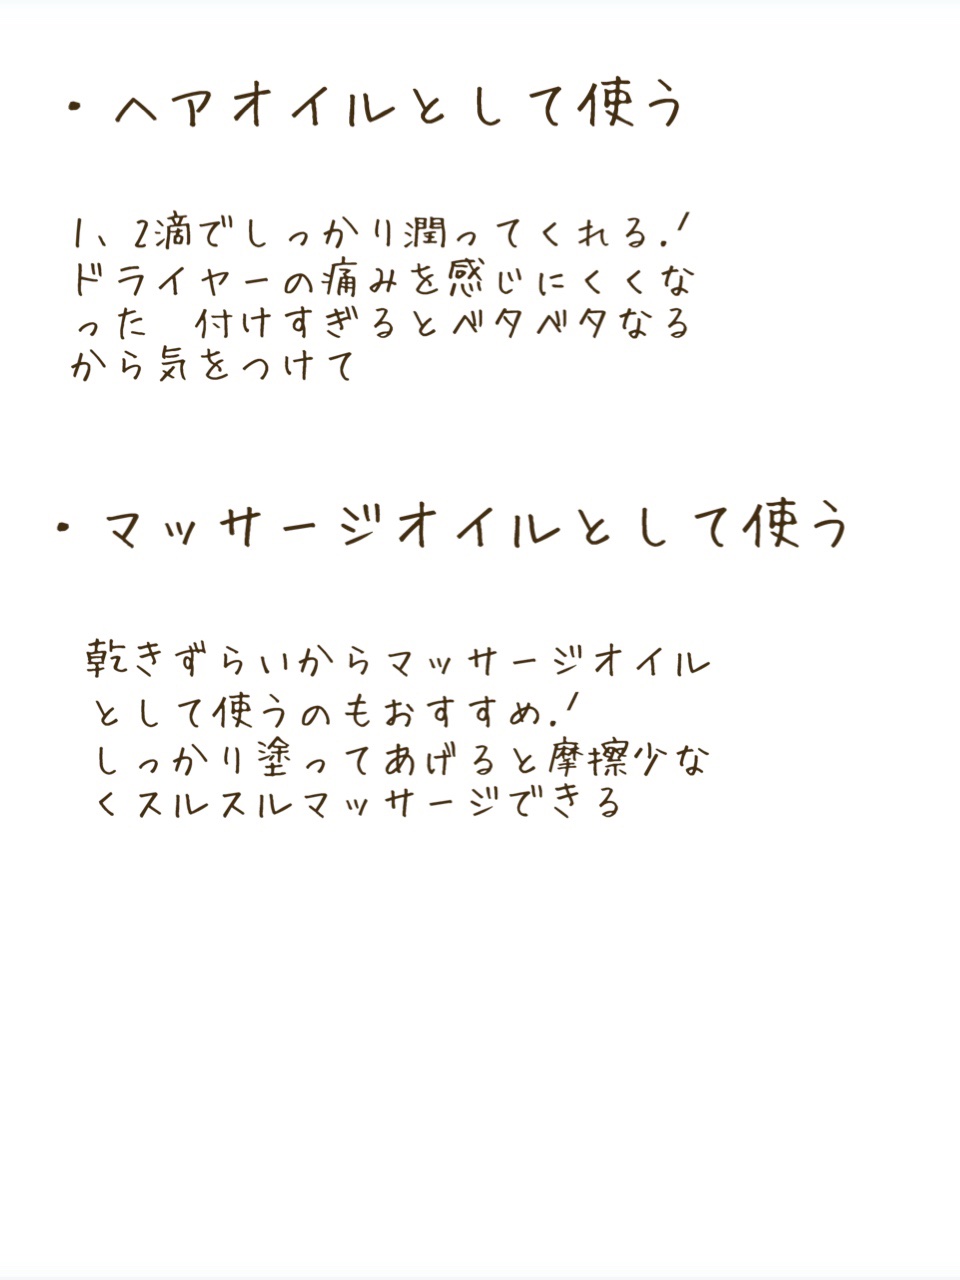 ・ヘアオイルとして使う
1、2滴でしっかり潤ってくれる！
ドライヤーの痛みを感じにくくな
った　付けすぎるとベタベタなる
から気をつけて
・マッサージオイルとして使う
乾きずらいからマッサージオイル
として使うのもおすすめ！
しっかり塗ってあげると摩擦少な
くスルスルマッサージできる